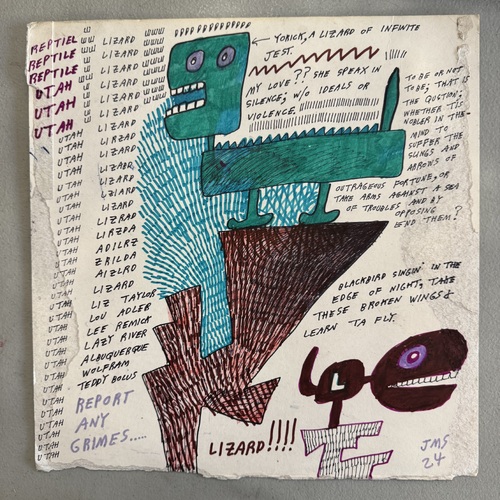 REPTIEL
REPTILE
REPTILE
UTAH
UTAH
UTAH
UTAH
UTAH
UTAH
UTAH
UTAH
UTAH
UTAH
UTAH
UTAH
UTAH
UTAH
UTAH
UTAH
UTAH
UTAH
UTAH
UTAH
UTAH
UTAH
UTAH
UTAH
UTAH
UTAH
UTAH
UTAH
UTAH
UTAH
UTAH
UTAH
LIZARD
LIZARD
LIZARD
LIZARD
LIZARD
LIZARD
LIZARD
LIZARD
LIZARD
LIZARD
LIZARD
LZIARD
LIZARD
LIZRAD
LIRZDA
ADILRZ
ZRILDA
AIZLRD
LIZARD
LIZ TAYLOR
LOU ADLER
LEE REMICK
LAZY RIVER
ALBUQUERQUE
WOLFBAM
TEDDY BOLUS
REPORT
ANY
GRIMES.....
YORICK, A LIZARD OF INFINITE
JEST.
MY LOVE?? SHE SPEAX IN
SILENCE; W/O IDEALS OR
VIOLENCE
TO BE OR NOT
TO BE; THAT IS
THE QUSTION:
WHETHER 'TIS
NOBLER IN THE
MIND TO
SUFFER THE
SLINGS AND
ARROWS OF
OUTRAGEOUS FORTUNE, OR
TAKE ARMS AGAINST A SEA
OF TROUBLES AND BY
OPPOSING
END THEM?
BLACKBIRD SINGIN' IN THE
EDGE OF NIGHT, TAKE
THESE BROKEN WINGS &
LEARN TA FLY.
L
LIZARD!!!!
JMS
24